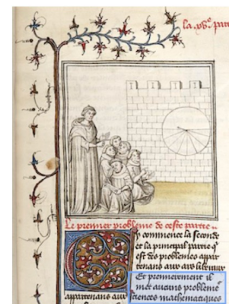 la .xv.e part
Le premier probleme de ceste partie
y commence la seconde
et la principal partie
est des problemes appar
tenans aus ars liberaux
Et premierement il
met aucuns problemes
appartenans aux sciences mathematiques